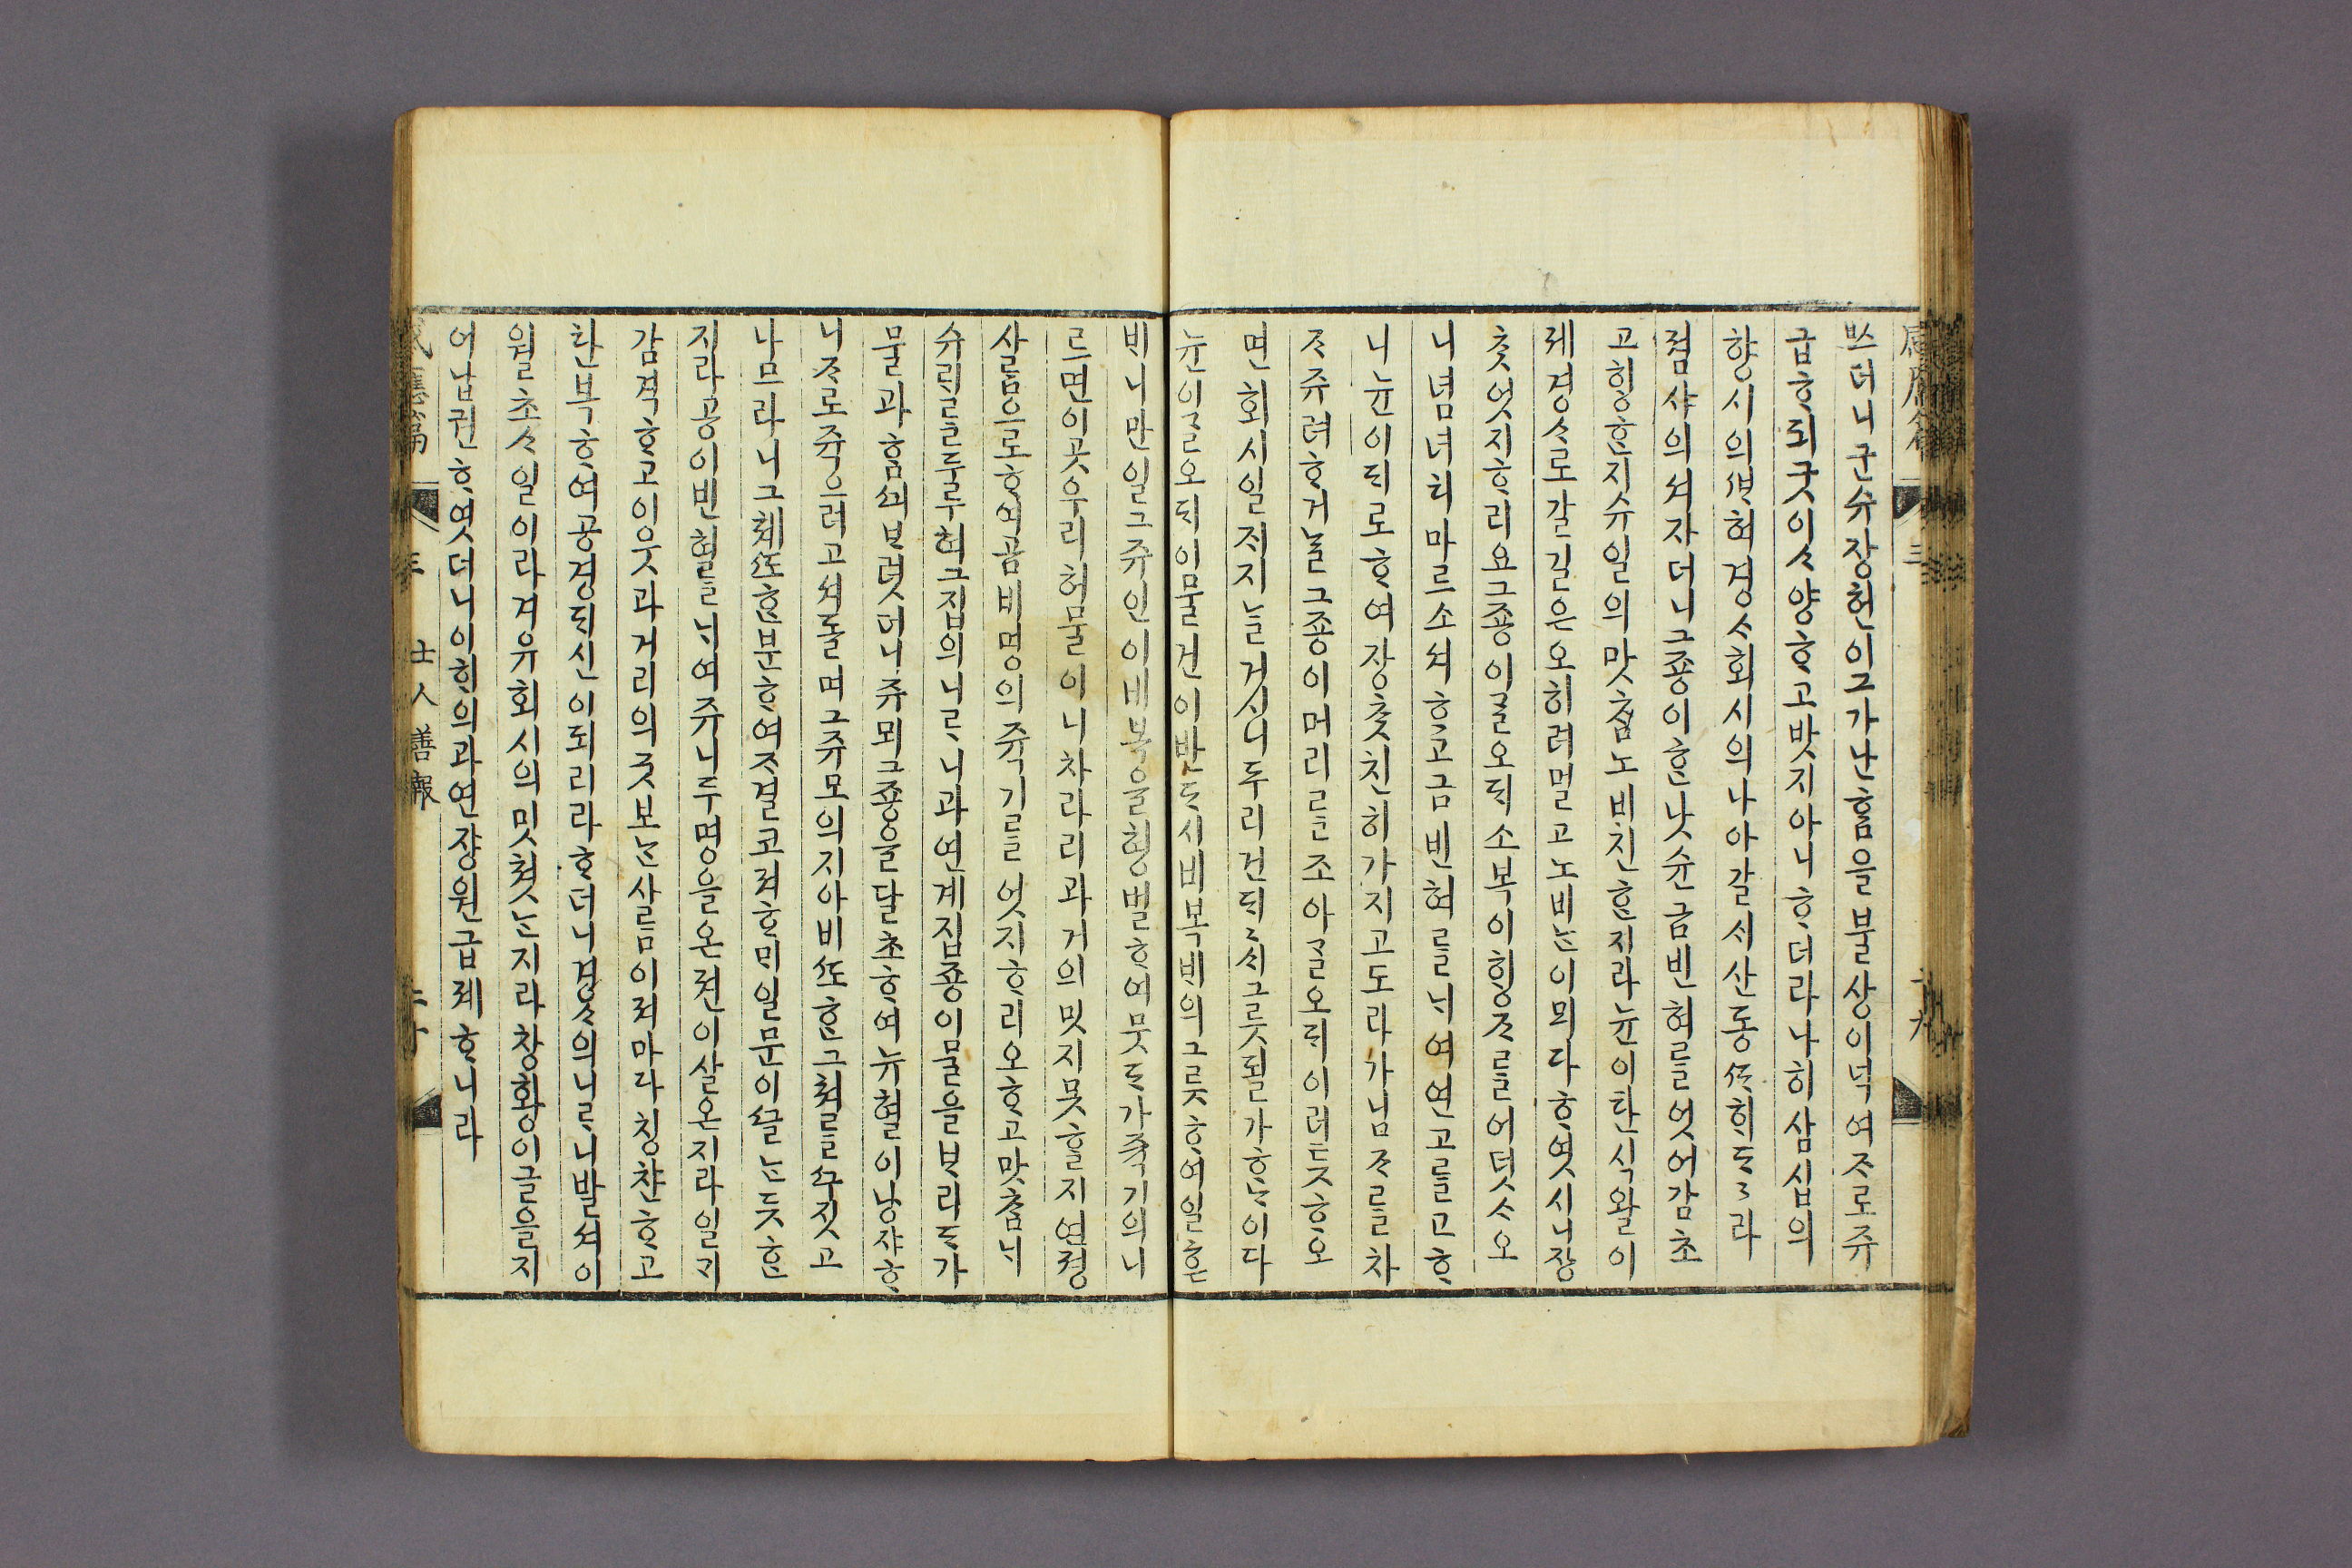 ᄡᅳ더니 군슈 장현이 그 가난ᄒᆞᆷ을 불상이 넉여 ᄌᆞ로 쥬
금ᄒᆞ되 굿이 ᄉᆞ양ᄒᆞ고 밧지 아니ᄒᆞ더라 나히 삼십의
향시의 ᄲᅢ혀 경ᄉᆞ 회시의 나아갈ᄉᆡ 산동 ᄯᅡᄒᆡ 드드라
졈사의셔 자더니 그 죵이 ᄒᆞᆫ낫 슌금 빈혀ᄅᆞᆯ 엇어 감초
고 ᄒᆡᆼᄒᆞᆫ지 슈일의 맛ᄎᆞᆷ 노비 진ᄒᆞᆫ지라 뉸이 탄식 왈 이
제 경ᄉᆞ로 갈 길은 오히려 멀고 노비ᄂᆞᆫ 이믜 다ᄒᆞ엿시니 장
ᄎᆞᆺ 엇지ᄒᆞ리요 그 죵이 ᄀᆞᆯ오ᄃᆡ 소복이 ᄒᆡᆼᄌᆞᄅᆞᆯ 어덧ᄉᆞ오
니 념녀치 마르소셔 ᄒᆞ고 금빈혀ᄅᆞᆯ ᄂᆡ여 연고ᄅᆞᆯ 고ᄒᆞ
니 뉸이 ᄃᆡ로ᄒᆞ여 장ᄎᆞᆺ 친히 가지고 도라가 님ᄌᆞᄅᆞᆯ 차
ᄌᆞ 쥬려 ᄒᆞ거ᄂᆞᆯ 그 죵이 머리ᄅᆞᆯ 조아 ᄀᆞᆯ오ᄃᆡ 이러ᄃᆞᆺ ᄒᆞ오
면 회시 일ᄌᆡ 지ᄂᆞᆯ 거시니 두리건ᄃᆡ ᄃᆡᄉᆞ 그릇될가 ᄒᆞᄂᆞ이다
뉸이 ᄀᆞᆯ오ᄃᆡ 이 물건이 반ᄃᆞ시 비복ᄇᆡ의 그릇ᄒᆞ여 일흔
비니 만일 그 쥬인이 비복을 형벌ᄒᆞ여 못ᄃᆞ가 쥭기의 니
르면 이 곳 우리 허물이니 차라리 과거의 밋지 못ᄒᆞᆯ지연졍
사ᄅᆞᆷ으로 ᄒᆞ여곰 비명의 쥭기ᄅᆞᆯ 엇지ᄒᆞ리오 ᄒᆞ고 맛ᄎᆞᆷᄂᆡ
슈ᄅᆡᄅᆞᆯ 두루혀 그 집의 니르니 과연 계집죵이 믈을 ᄇᆞ리ᄃᆞ가
믈과 ᄒᆞᆷᄭᅴ ᄇᆞ렷더니 쥬뫼 그 죵을 달초ᄒᆞ여 뉴혈이 낭쟈ᄒᆞ
니 ᄌᆞ로 쥭으려 고셔들며 그 쥬모의 지아비 ᄯᅩᄒᆞᆫ 그 쳐ᄅᆞᆯ ᄭᅮ짓고
나므라니 그 쳬 ᄯᅩᄒᆞᆫ 분ᄒᆞ여 ᄌᆞ결코져 ᄒᆞᄆᆡ 일문이 ᄭᅳᆯᄂᆞᆫ ᄃᆞᆺᄒᆞᆫ
지라 공이 빈혀ᄅᆞᆯ ᄂᆡ여 쥬니 두 명을 온젼이 살온지라 일ᄀᆡ
감격ᄒᆞ고 이웃과 거리의 굿보ᄂᆞᆫ 사ᄅᆞᆷ이 져마다 칭찬ᄒᆞ고
찬복ᄒᆞ여 공경ᄃᆡ신이 되리라 ᄒᆞ더니 경ᄉᆞ의 니르니 발셔 이
월 초ᄉᆞ일이라 겨유 회시의 밋쳣ᄂᆞᆫ지라 창황이 글을 지
어 납권ᄒᆞ엿더니 이 ᄒᆡ의 과연 쟝원 급졔ᄒᆞ니라
士人善報